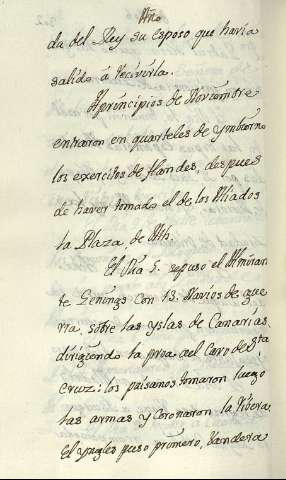 Año
da del Rey su esposo que havia
salido â recivirla.
A principios de Noviembre
entraron en quarteles de Ynbierno
los exercitos de Flandes, despues
de haver tomado el de los Aliados
la Plaza de Ath.
El Dia 5. sepuso el Almiran
te Genings con 13. Navios de gue
rra, sobre las yslas de Canarias,
dirigiendo la proa ael Cavo de Sta.
Cruz: los paisanos tomaron luego
las armas y Coronaron la Rivera
El yngles puso primero, Vandera